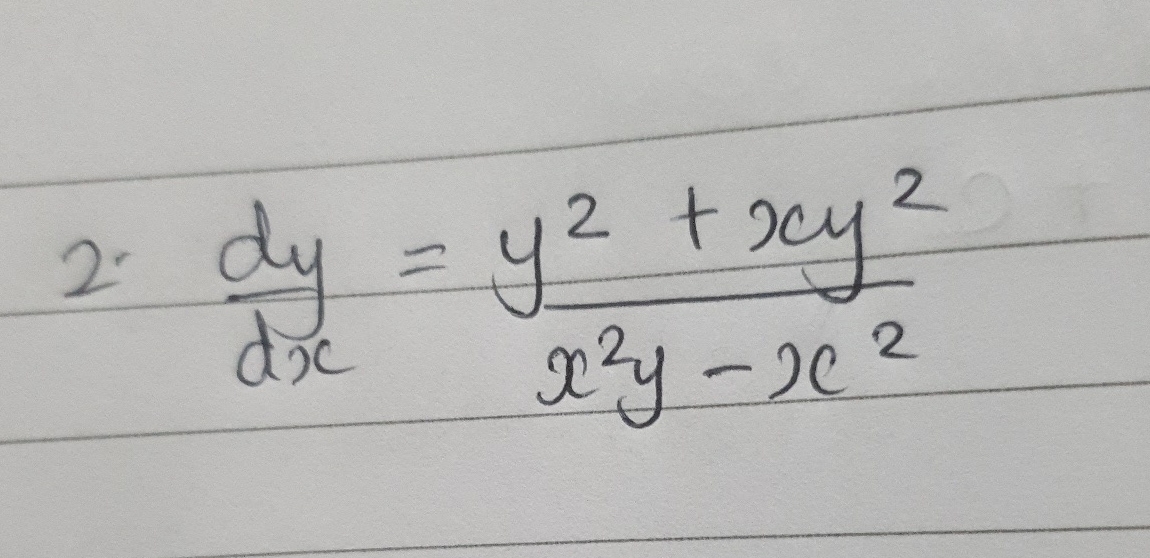 2. dy/dx = (y² + xy²)/(x²y - x²)